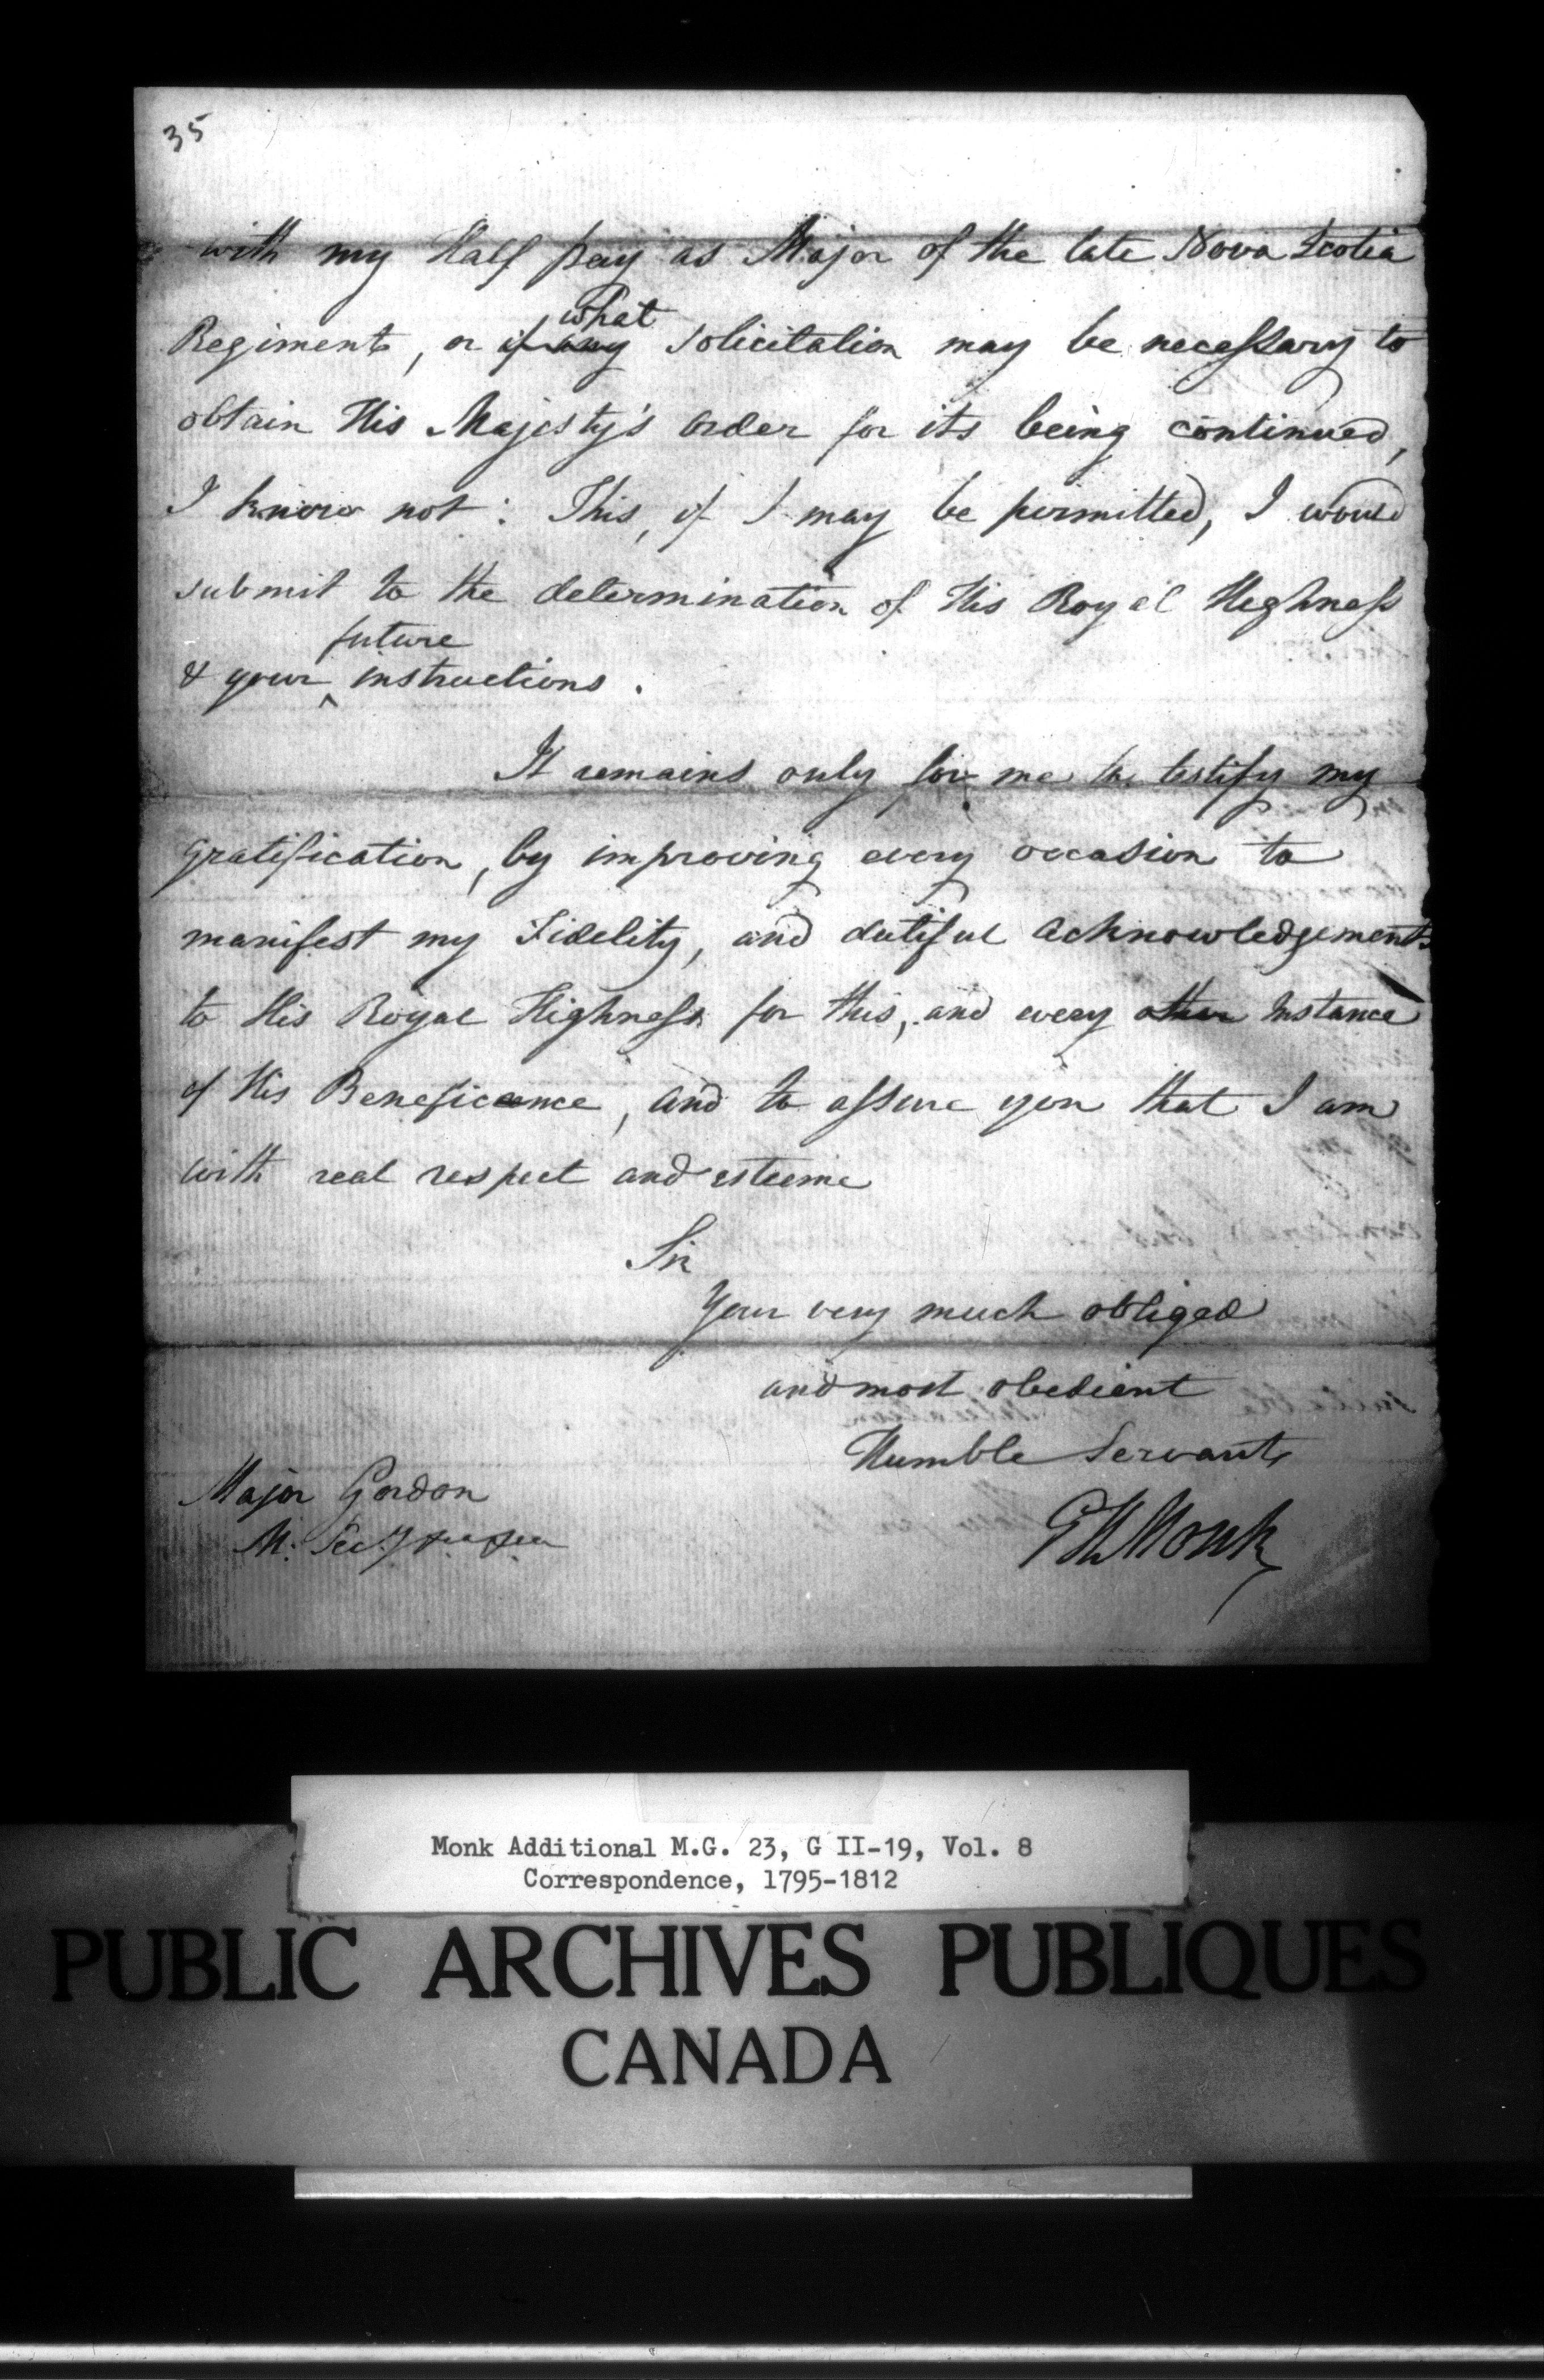 35
with my Half pay as Major of the late Nova Scotia
what
Regiment, or if any solicitation may be necessary to
obtain His Majesty's order for its being continued,
I know not: This, if I may be permitted, I would
submit to the determination of His Royal Highness
future
& your ^ instructions.
It remains only for me to testify my
gratification, by improving every occasion to
manifest my Fidelity, and dutiful acknowledgements
to His Royal Highness for this, and every other Instance
of His Beneficence, and to assure you that I am
with real respect and esteeme
Sir
Your very much obliged
and most obedient
Humble Servant
Major Gordon
M. Secy
GH Monk
Monk Additional M.G. 23, G II-19, Vol. 8
Correspondence, 1795-1812
PUBLIC ARCHIVES PUBLIQUES
CANADA